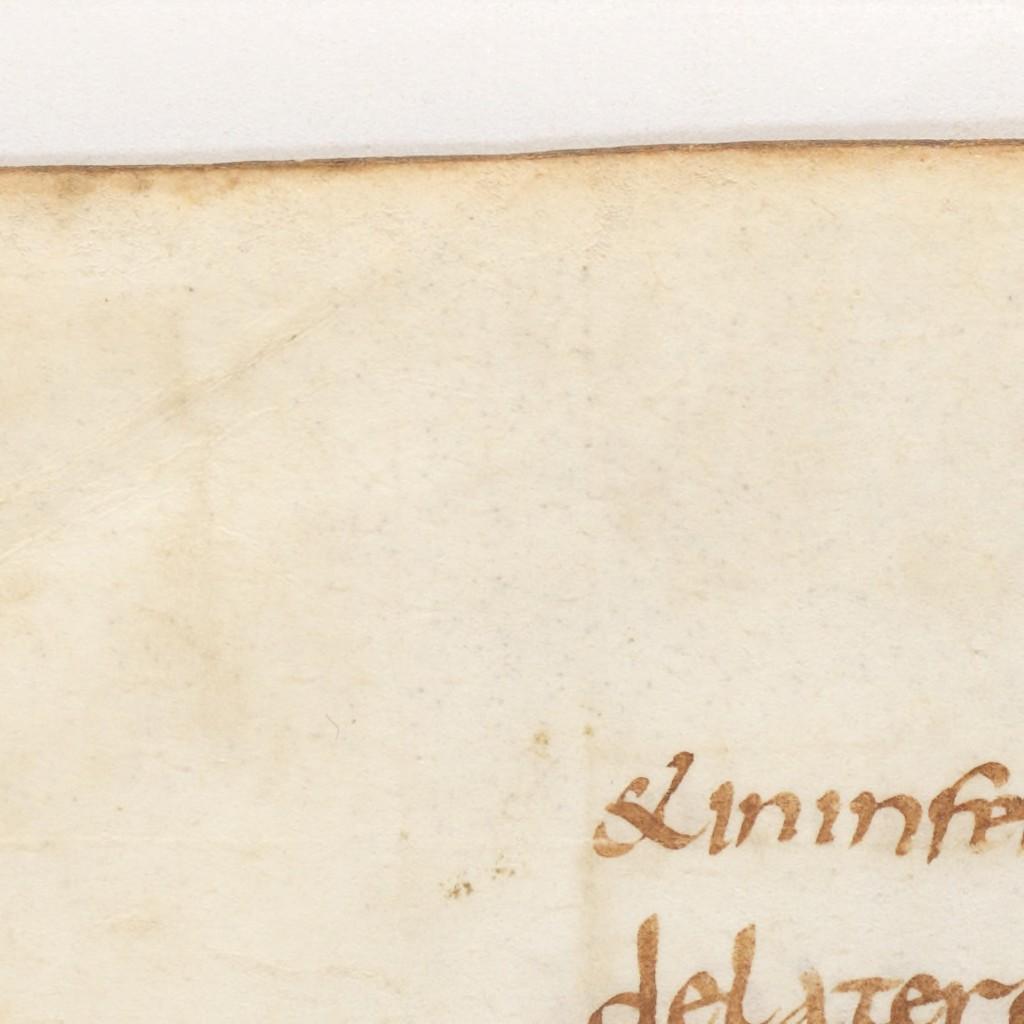 & in infe
delatere